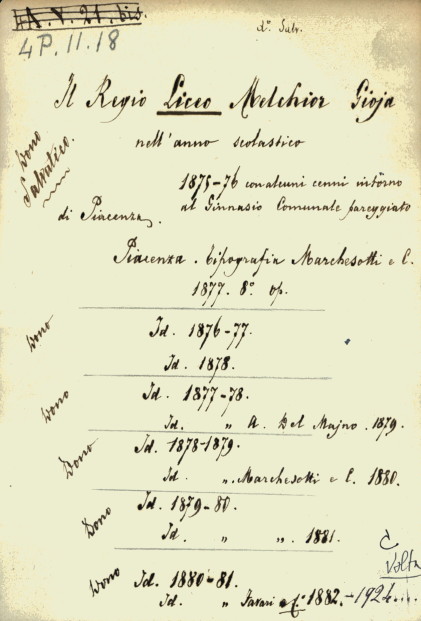 A. V. 21. bis
d°. Salv.
4P.II.18
Il Regio Liceo Melchior Gioja
nell'anno scolastico
Dono Salvatico.
1875-76 con alcuni cenni intorno
di Piacenza, al Ginnasio Comunale pareggiato
Piacenza. tipografia Marchesotti e C.
1877. 8° op.
Dono Id. 1876-77.
Id. 1878.
Dono Id. 1877-78.
Id. " A. Del Majno. 1879.
Dono Id. 1878-1879.
Id. ". Marchesotti e C. 1880.
Dono Id. 1879-80.
Id. " ". 1881.
Dono Id. 1880-81.
Id. " Favari e C. 1882.-1924...
C
Volta